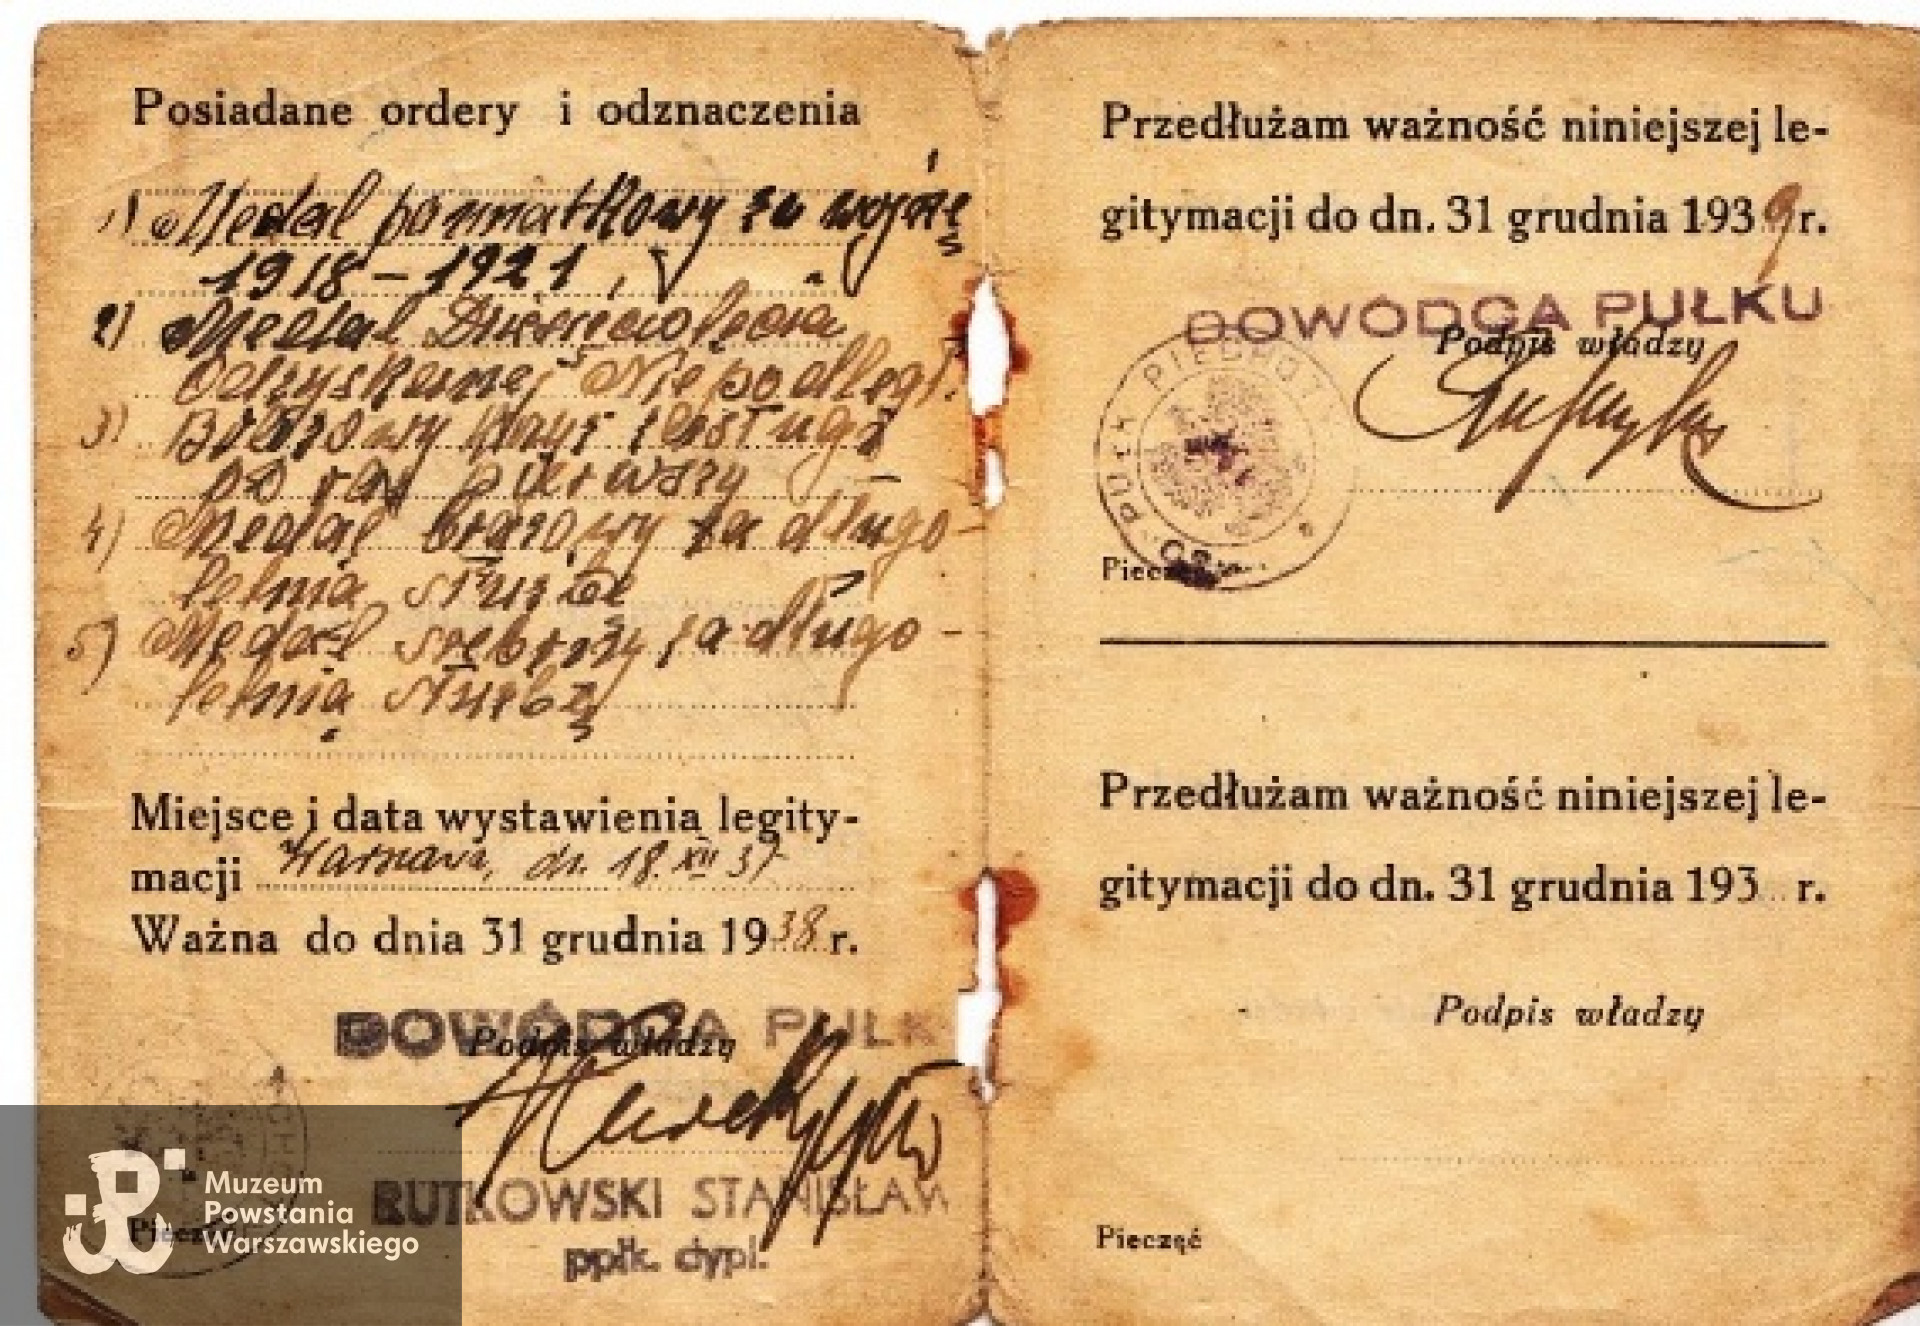 Posiadane ordery i odznaczenia
1) Medal pamiątkowy za wojnę
1918-1921
2) Medal Dziesięciolecia
Odzyskanej Niepodległ.
3) Brązowy Krzyż Zasługi
po raz pierwszy
4) Medal brązowy za długo-
letnią służbę
5) Medal srebrny za długo-
letnią służbę
Miejsce i data wystawienia legity-
macji Warszawa, dn. 18.XII 37
Ważna do dnia 31 grudnia 1938 r.
DOWÓDCA PUŁK
Podpis władzy
RUTKOWSKI STANISŁAW
ppłk. dypl.
Pieczęć
Muzeum
Powstania
Warszawskiego
Przedłużam ważność niniejszej le-
gitymacji do dn. 31 grudnia 1939 r.
DOWÓDCA PUŁKU
Podpis władzy
PUŁK PIECHOTY
Pieczęć
Przedłużam ważność niniejszej le-
gitymacji do dn. 31 grudnia 193 r.
Podpis władzy
Pieczęć